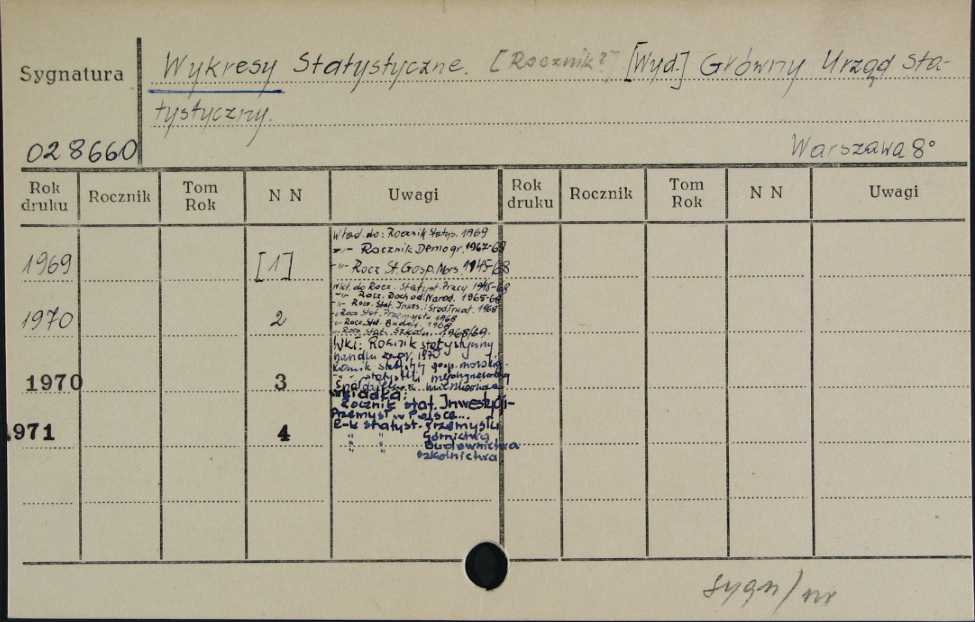 Sygnatura
Wykresy Statystyczne. [Rocznik?] [Wyd.] Główny Urząd Sta-
tystyczny.
028660
Warszawa 8°
Rok druku Rocznik Tom Rok N N Uwagi Rok druku Rocznik Tom Rok N N Uwagi
Wkład do: Rocznik Statys. 1969
-"- Rocznik Demogr. 1967-68
1969 [1] -"- Rocz. St. Gosp. Mors. 1945-68
Wkł. do Rocz. Statyst. Pracy 1945-68
-"- Rocz. Dochod. Narod. 1965-68
-"- Rocz. Stat. Inwes. i Środ. Trwał. 1968
1970 2 Rocz. Stat. Przemysłu 1968
Rocz. Stat. Budow. 1968
Rocz. Stat. Szkoln. 1968/69.
Wkł: Rocznik statystyczny
handlu zagr. 1970
gosp. morskiej
1970 3 statystyki międzynarodowej
Rocznik stat. Inwestycji
Przemysł w Polsce...
1971 4 R-k statyst. Przemysłu
" " Górnictwa
" " Budownictwa
Szkolnictwa
sygn/nr